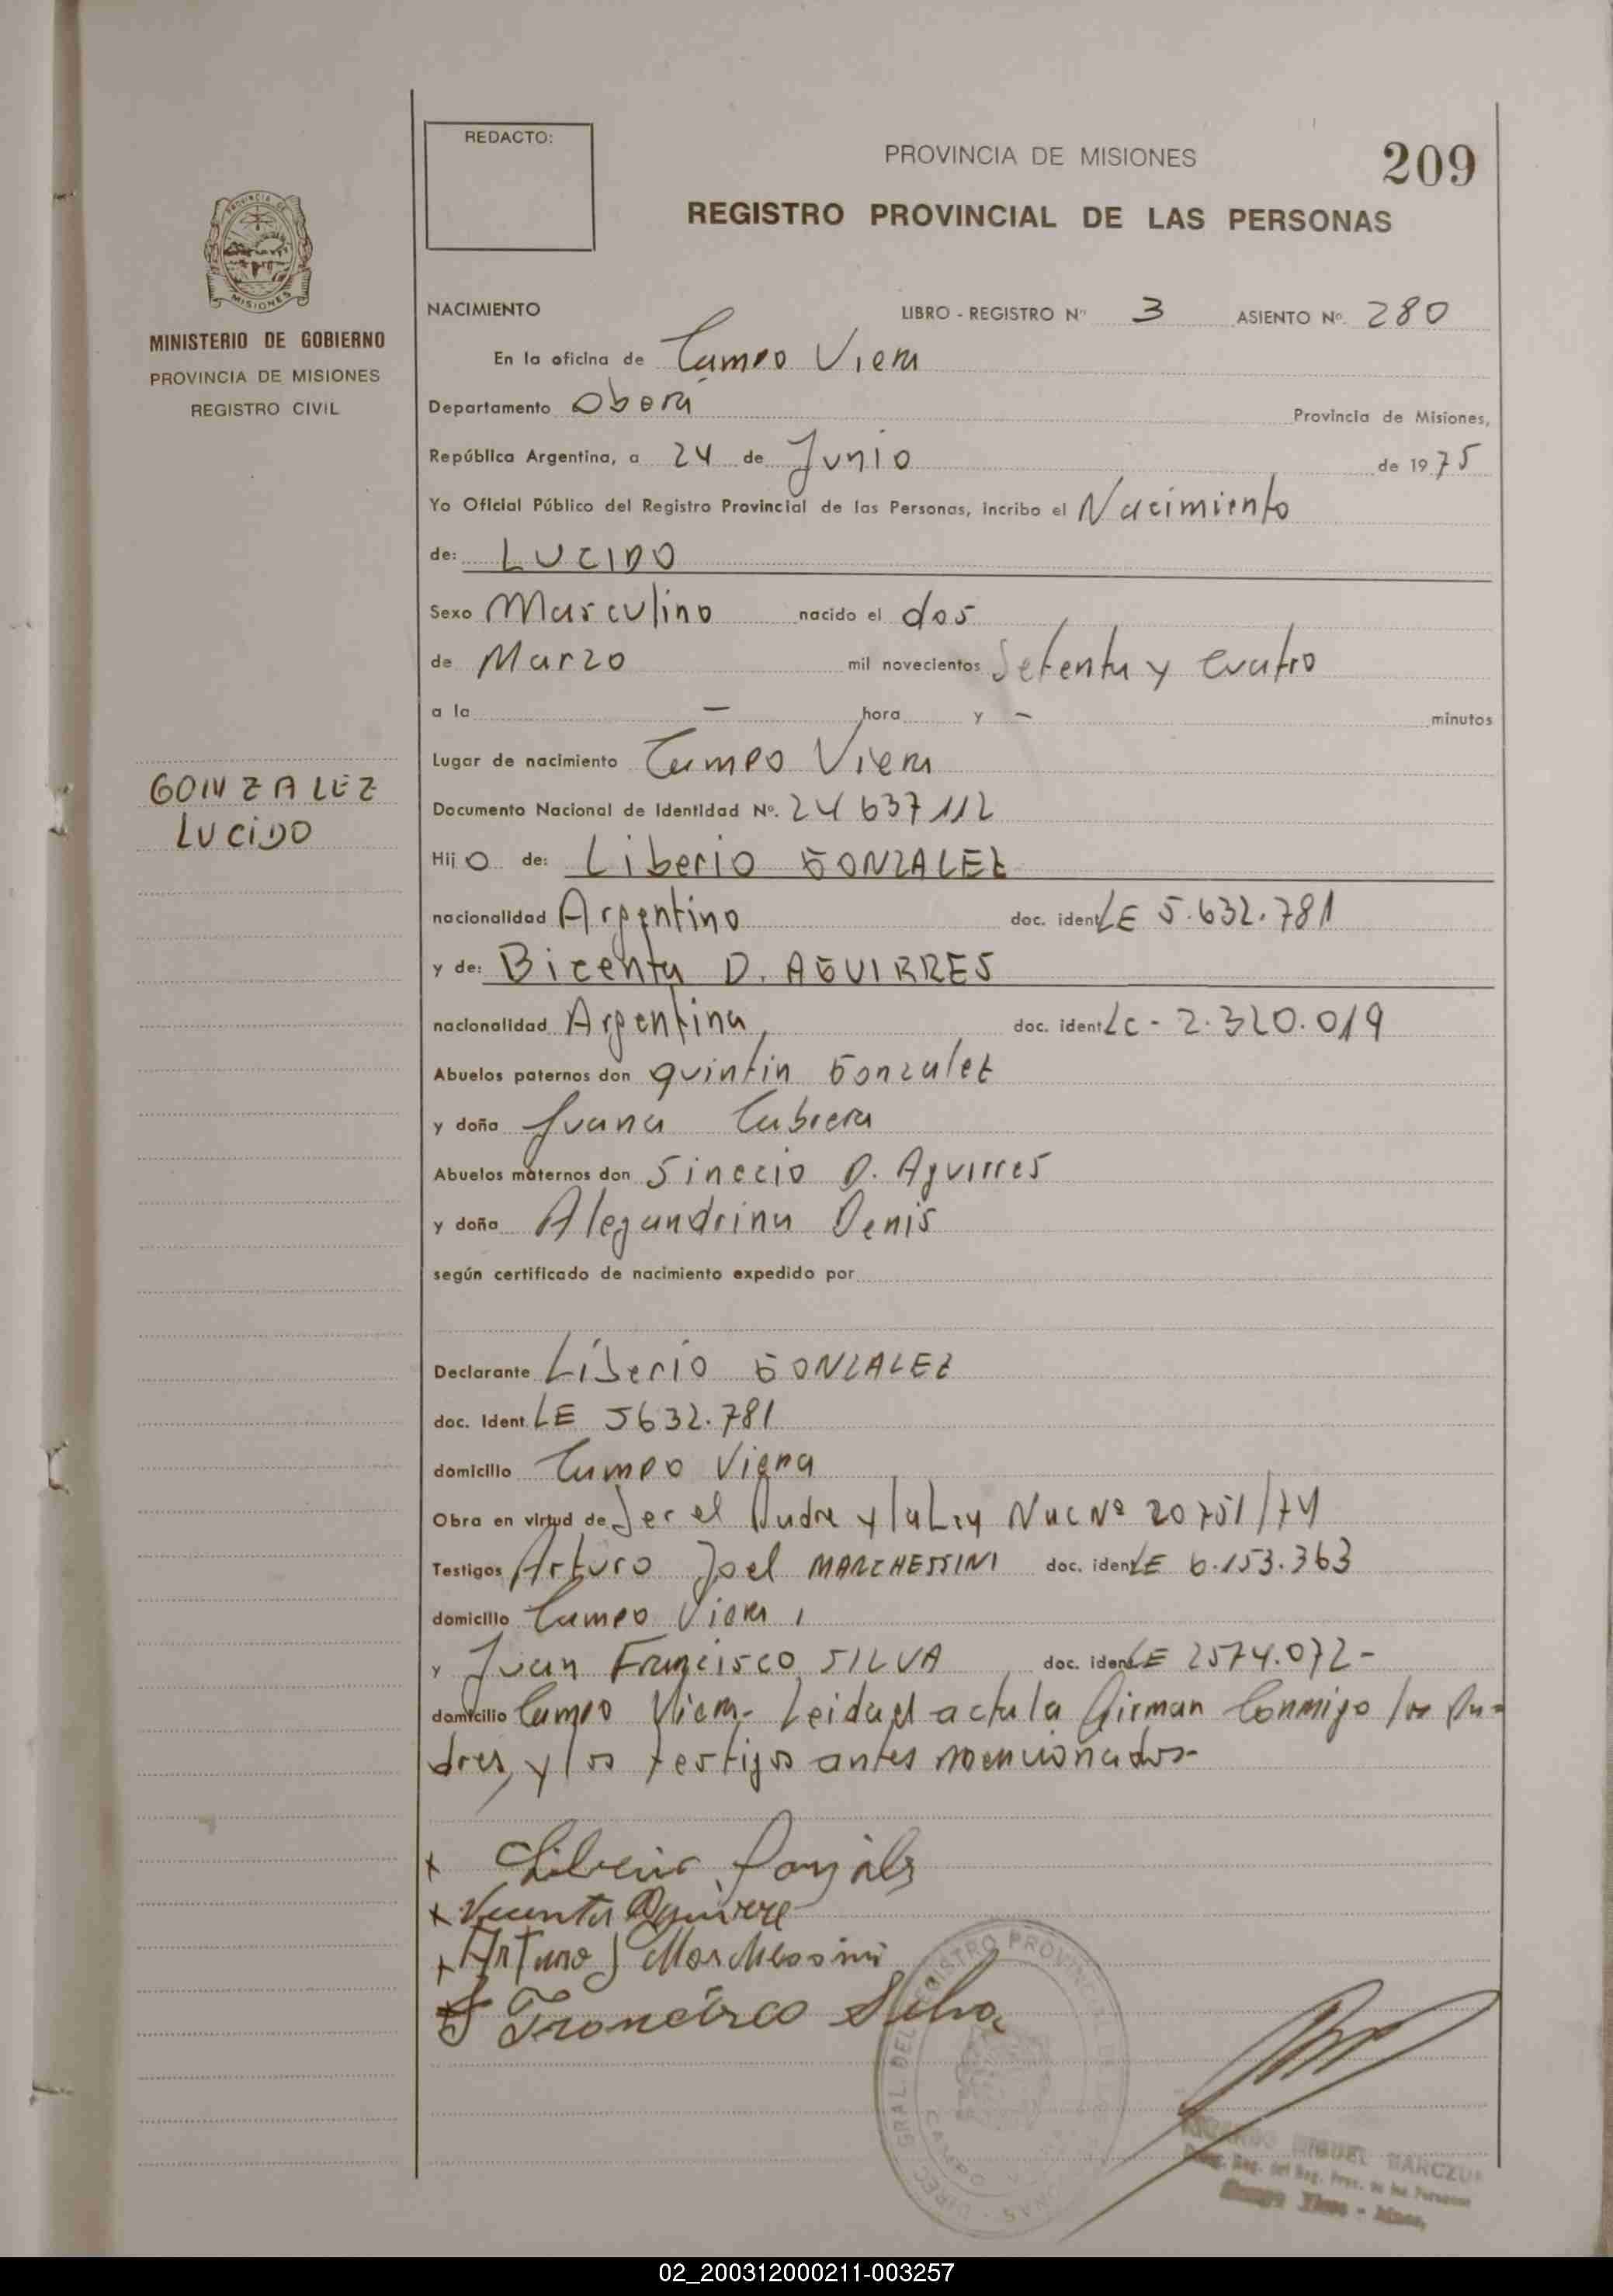 REDACTO:
PROVINCIA DE MISIONES
209
REGISTRO PROVINCIAL DE LAS PERSONAS
PROVINCIA DE
MISIONES
MINISTERIO DE GOBIERNO
PROVINCIA DE MISIONES
REGISTRO CIVIL
GONZALEZ
LUCIDO
NACIMIENTO LIBRO - REGISTRO Nº 3 ASIENTO Nº. 280
En la oficina de Campo Viera
Departamento Oberá Provincia de Misiones,
República Argentina, a 24 de Junio de 1975
Yo Oficial Público del Registro Provincial de las Personas, incribo el Nacimiento
de: LUCIDO
Sexo Masculino nacido el dos
de Marzo mil novecientos Setenta y cuatro
a la - hora y - minutos
Lugar de nacimiento Campo Viera
Documento Nacional de Identidad Nº. 24 637 112
Hijo de: Liberio GONZALEZ
nacionalidad Argentino doc. ident LE 5.632.781
y de: Bicenta D. AGUIRRES
nacionalidad Argentina, doc. ident LC - 2.320.019
Abuelos paternos don quintin Gonzalez
y doña Juana Cabrera
Abuelos maternos don Sinecio D. Aguirres
y doña Alegandrina Denis
según certificado de nacimiento expedido por
Declarante Liberio GONZALEZ
doc. Ident. LE 5632.781
domicilio Campo Viera
Obra en virtud de Ser el Padre y la Ley Nac Nº 20751/74
Testigos Arturo Joel MARCHESSINI doc. ident LE 6.153.363
domicilio Campo Viera,
y Juan Francisco SILVA doc. ident LE 2574.072-
domicilio Campo Viera- Leida el acta la firman Conmigo los Pa-
dres, y los testigos antes mencionados-
x Liberio Gonzalez
x Vicenta Aguirre
x Arturo J Marchessini
J Francisco Silva
DIREC. GRAL. DEL REGISTRO PROVINCIAL DE LAS
CAMPO
MIGUEL
del Reg. Prov. de las Personas
Campo Viera - Mnes.
02_200312000211-003257